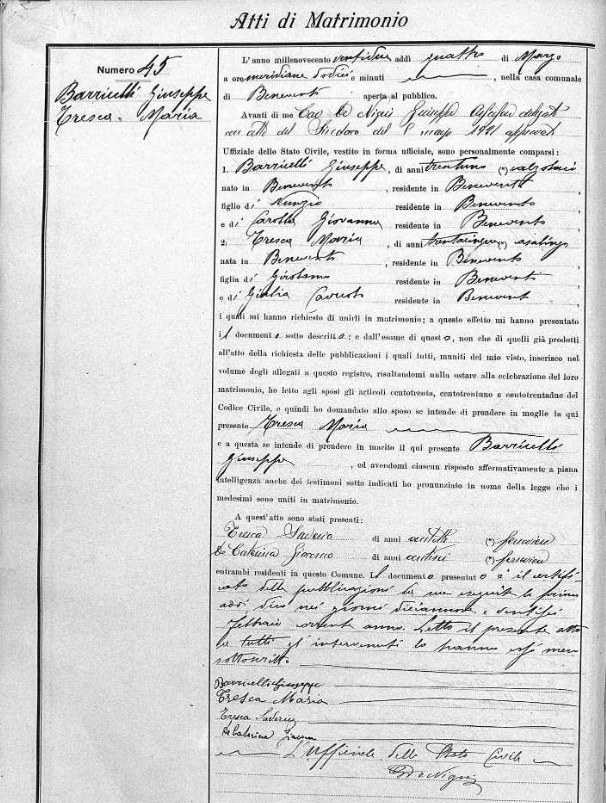 Atti di Matrimonio
Numero 45
Barricelli Giuseppe
Tresca Maria
L'anno millenovecento ventidue addì quattro di Marzo
a ore meridiane dodici e minuti , nella casa comunale
di Benevento aperta al pubblico.
Avanti di me Cav de Nigris Giuseppe Assessore delegato
con atto del Sindaco del maggio 1921 approvato
Uffiziale dello Stato Civile, vestito in forma ufficiale, sono personalmente comparsi:
1. Barricelli Giuseppe, di anni trentuno (*) calzolaio
nato in Benevento, residente in Benevento
figlio di Nunzio residente in Benevento
e di Carolla Giovanna residente in Benevento,
2. Tresca Maria, di anni trentacinque (*) casalinga
nata in Benevento, residente in Benevento
figlia di Girolamo residente in Benevento
e di Giulia residente in Benevento
i quali mi hanno richiesto di unirli in matrimonio; a questo effetto mi hanno presentato
il documento sotto descritto; e dall'esame di questo, non che di quelli già prodotti
all'atto della richiesta delle pubblicazioni i quali tutti, muniti del mio visto, inserisco nel
volume degli allegati a questo registro, risultandomi nulla ostare alla celebrazione del loro
matrimonio, ho letto agli sposi gli articoli centotrenta, centotrentuno e centotrentadue del
Codice Civile, e quindi ho domandato allo sposo se intende di prendere in moglie la qui
presente Tresca Maria
e a questa se intende di prendere in marito il qui presente Barricelli
Giuseppe, ed avendomi ciascun risposto affermativamente a piena
intelligenza anche dei testimoni sotto indicati ho pronunziato in nome della legge che i
medesimi sono uniti in matrimonio.
A quest'atto sono stati presenti:
Tresca Saverio di anni (*) ferroviere
De Caterina Giacomo di anni (*) ferroviere
entrambi residenti in questo Comune. Il documento presentato è il certifi
cato delle pubblicazioni da me eseguite la prima
addì dieci nei giorni diciannove e ventisei
Febbraio corrente anno. Letto il presente atto
a tutti gl'intervenuti lo hanno essi meco
sottoscritto.
Barricelli Giuseppe
Tresca Maria
Tresca Saverio
De Caterina Giacomo
L'Uffiziale dello Stato Civile
G de Nigris